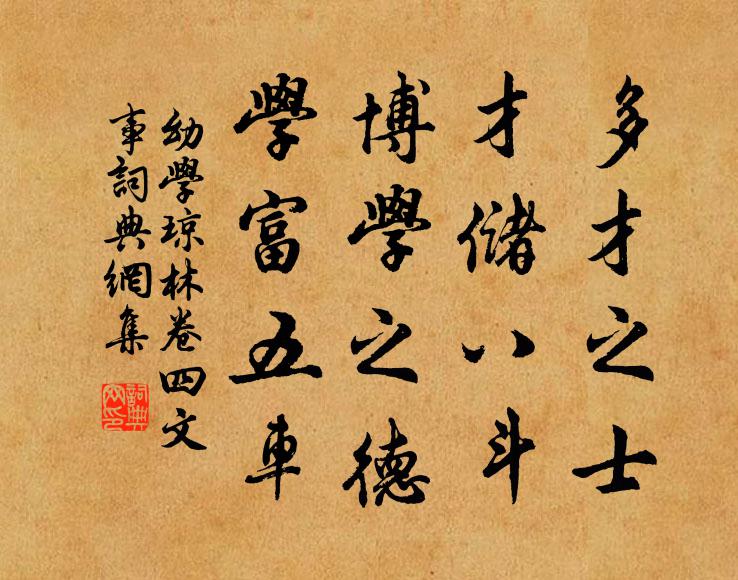 多才之士
才儲八斗
博學之德
學富五車
幼學琼林卷四文
事詞典網集
詞典
网印